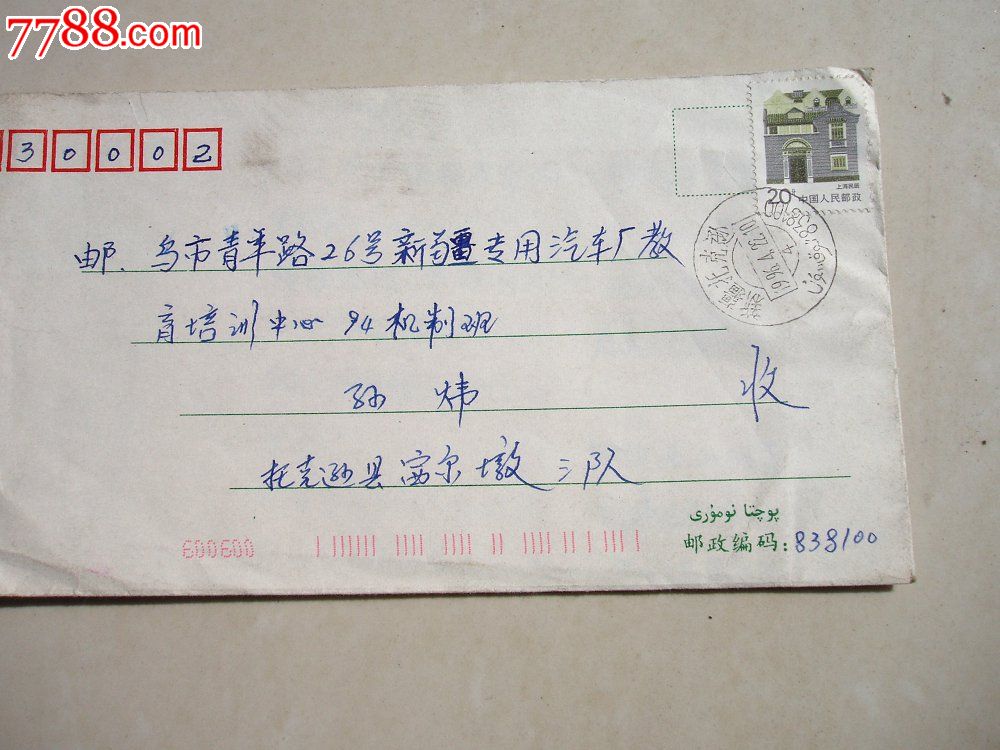 7788.com
30002
上海民居
20分
中国人民邮政
838100
新疆托克逊
1996.4.22.10
4
邮.乌市青年路26号新疆专用汽车厂教
育培训中心94机制班
孙 炜 收
托克逊县 墩 三队
پوچتا نومۇرى
邮政编码:838100
600600